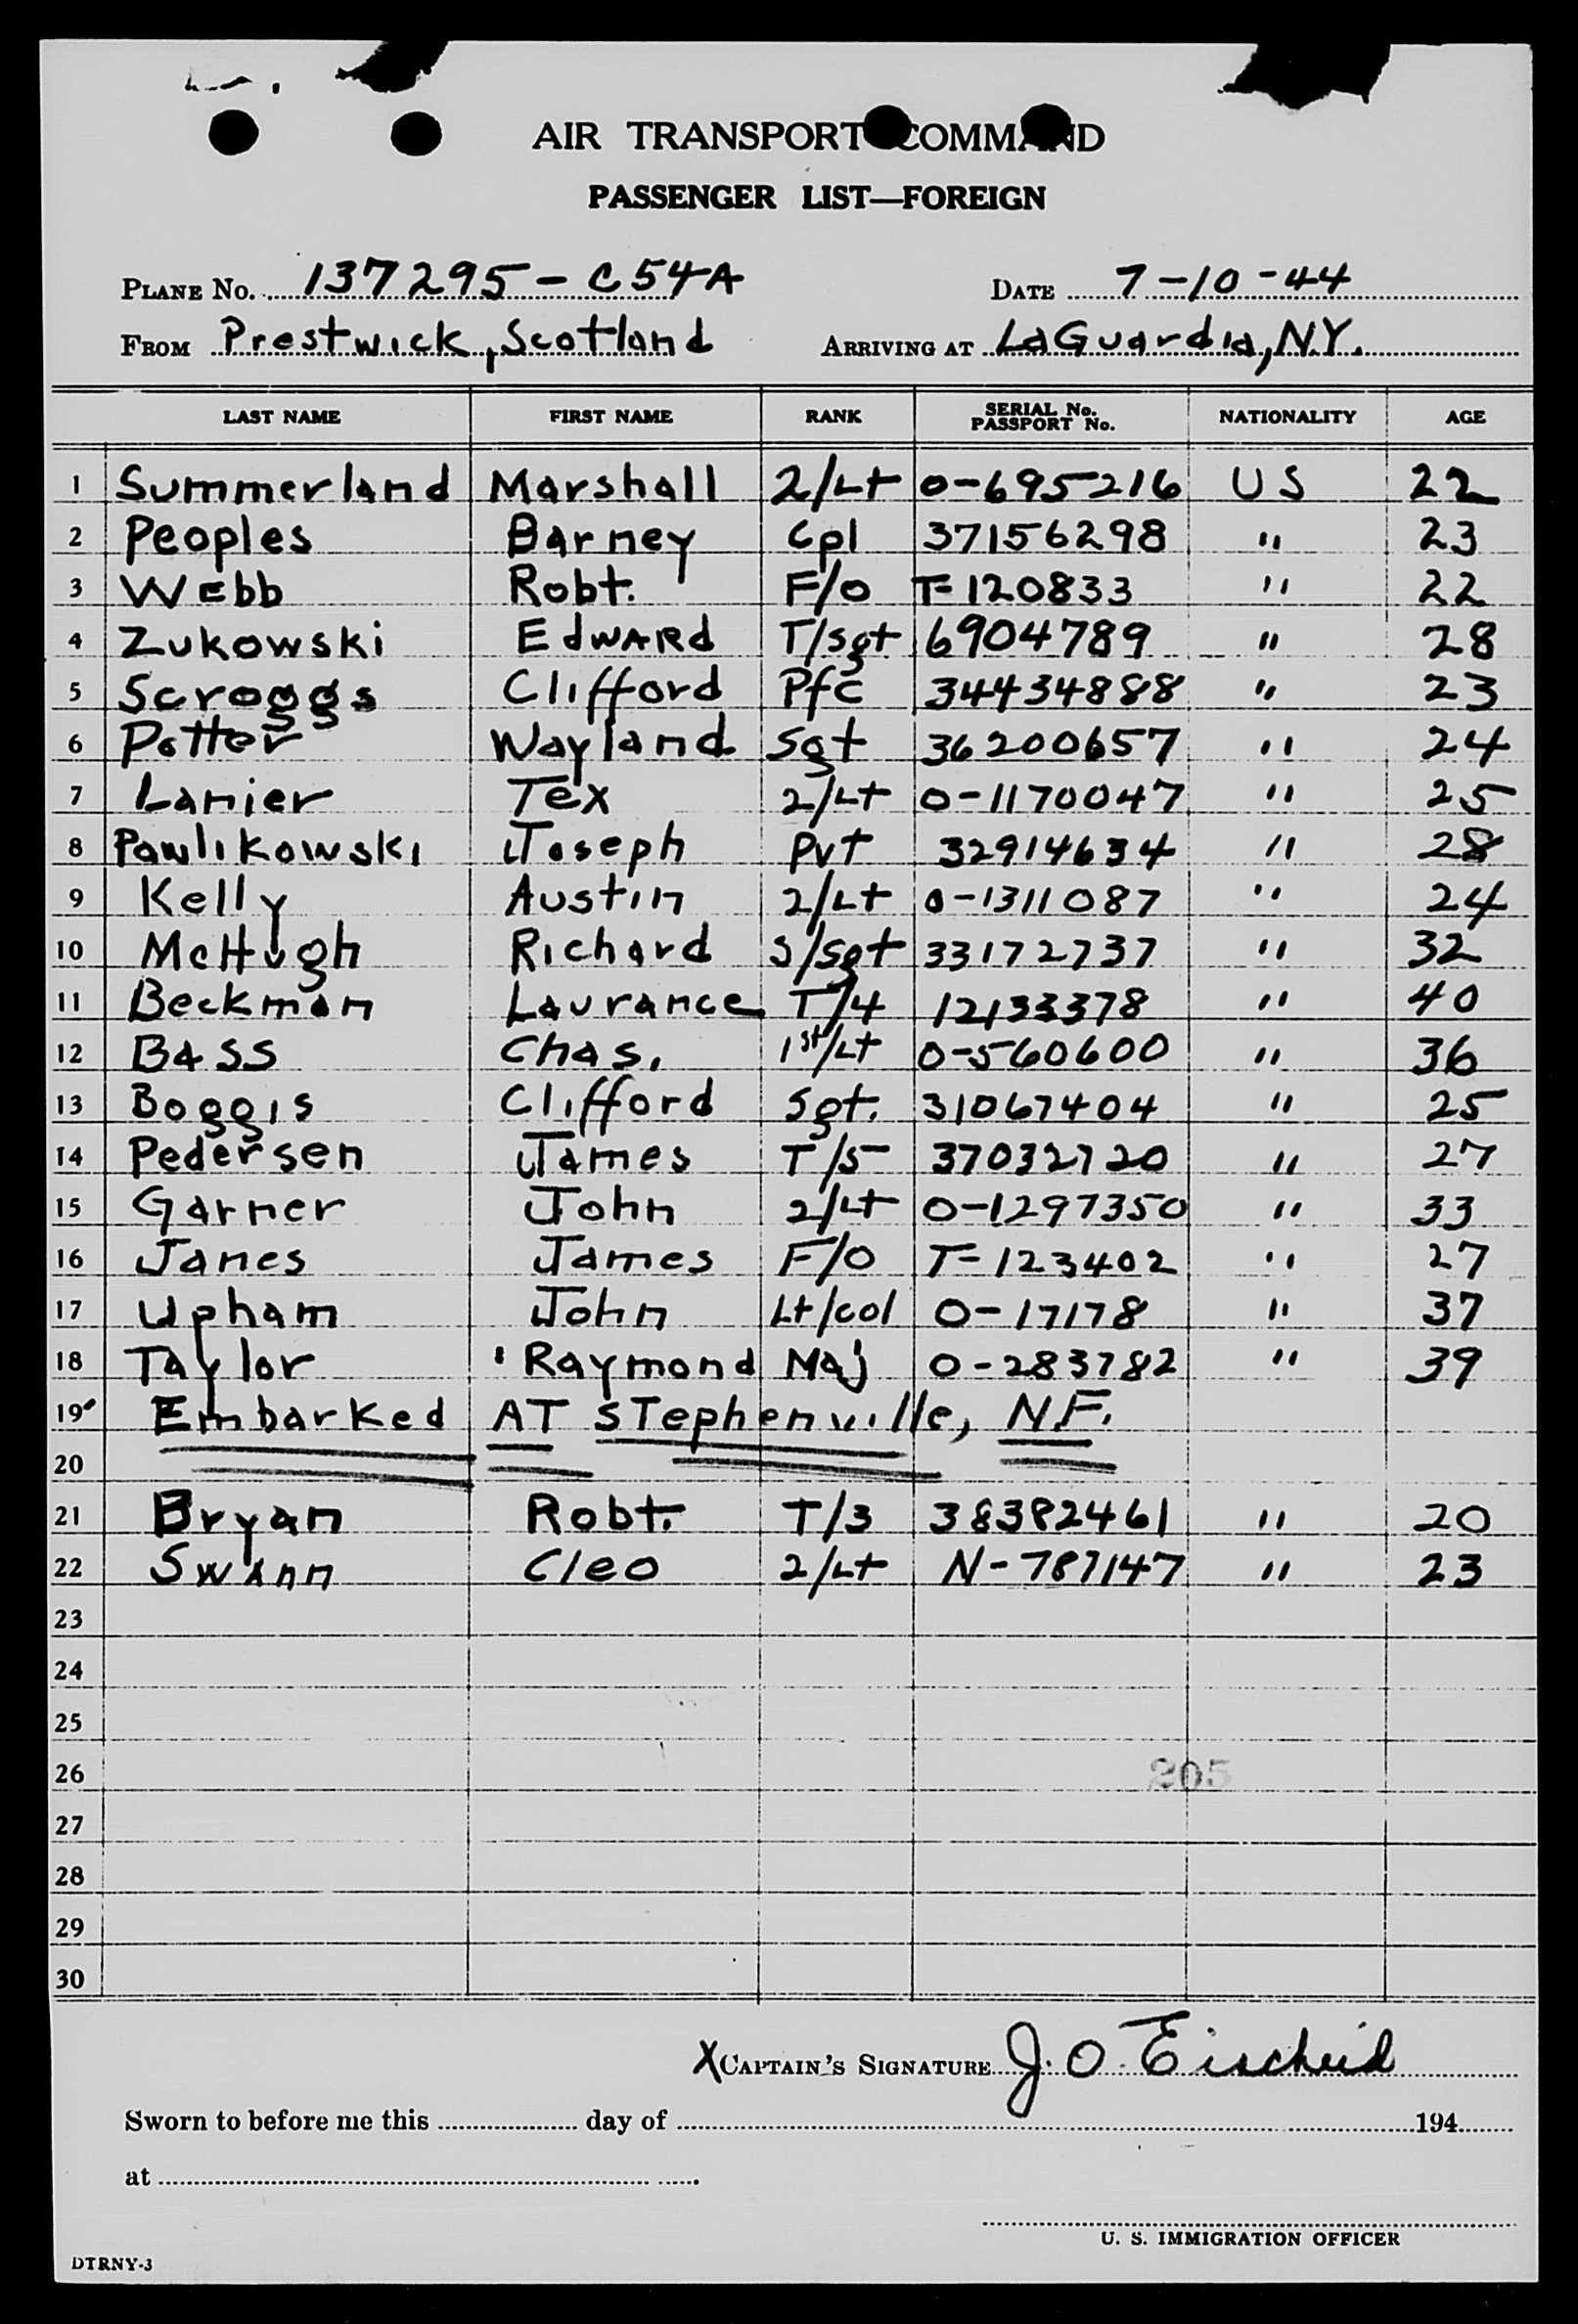 AIR TRANSPORT COMMAND
PASSENGER LIST—FOREIGN
PLANE No. 137295-C54A DATE 7-10-44
FROM Prestwick, Scotland ARRIVING AT LaGuardia, N.Y.
LAST NAME FIRST NAME RANK SERIAL No. PASSPORT No. NATIONALITY AGE
1 Summerland Marshall 2/Lt 0-695216 US 22
2 Peoples Barney Cpl 37156298 " 23
3 Webb Robt. F/O T-120833 " 22
4 Zukowski Edward T/sgt 6904789 " 28
5 Scroggs Clifford Pfc 34434888 " 23
6 Potter Wayland Sgt 36200657 " 24
7 Lanier Tex 2/Lt 0-1170047 " 25
8 Pawlikowski Joseph Pvt 32914634 " 28
9 Kelly Austin 2/Lt 0-1311087 " 24
10 McHugh Richard S/Sgt 33172737 " 32
11 Beckman Laurance T/4 12133378 " 40
12 Bass Chas. 1st/Lt 0-560600 " 36
13 Boggis Clifford Sgt. 31067404 " 25
14 Pedersen James T/5 37032720 " 27
15 Garner John 2/Lt 0-1297350 " 33
16 Janes James F/O T-123402 " 27
17 Upham John Lt/col 0-17178 " 37
18 Taylor Raymond Maj 0-283782 " 39
19 Embarked AT STephenville, N.F.
20
21 Bryan Robt. T/3 38382461 " 20
22 Swann Cleo 2/Lt N-787147 " 23
23
24
25
26 205
27
28
29
30
X CAPTAIN'S SIGNATURE J. O. Eischeid
Sworn to before me this day of 194
at
U. S. IMMIGRATION OFFICER
DTRNY-3